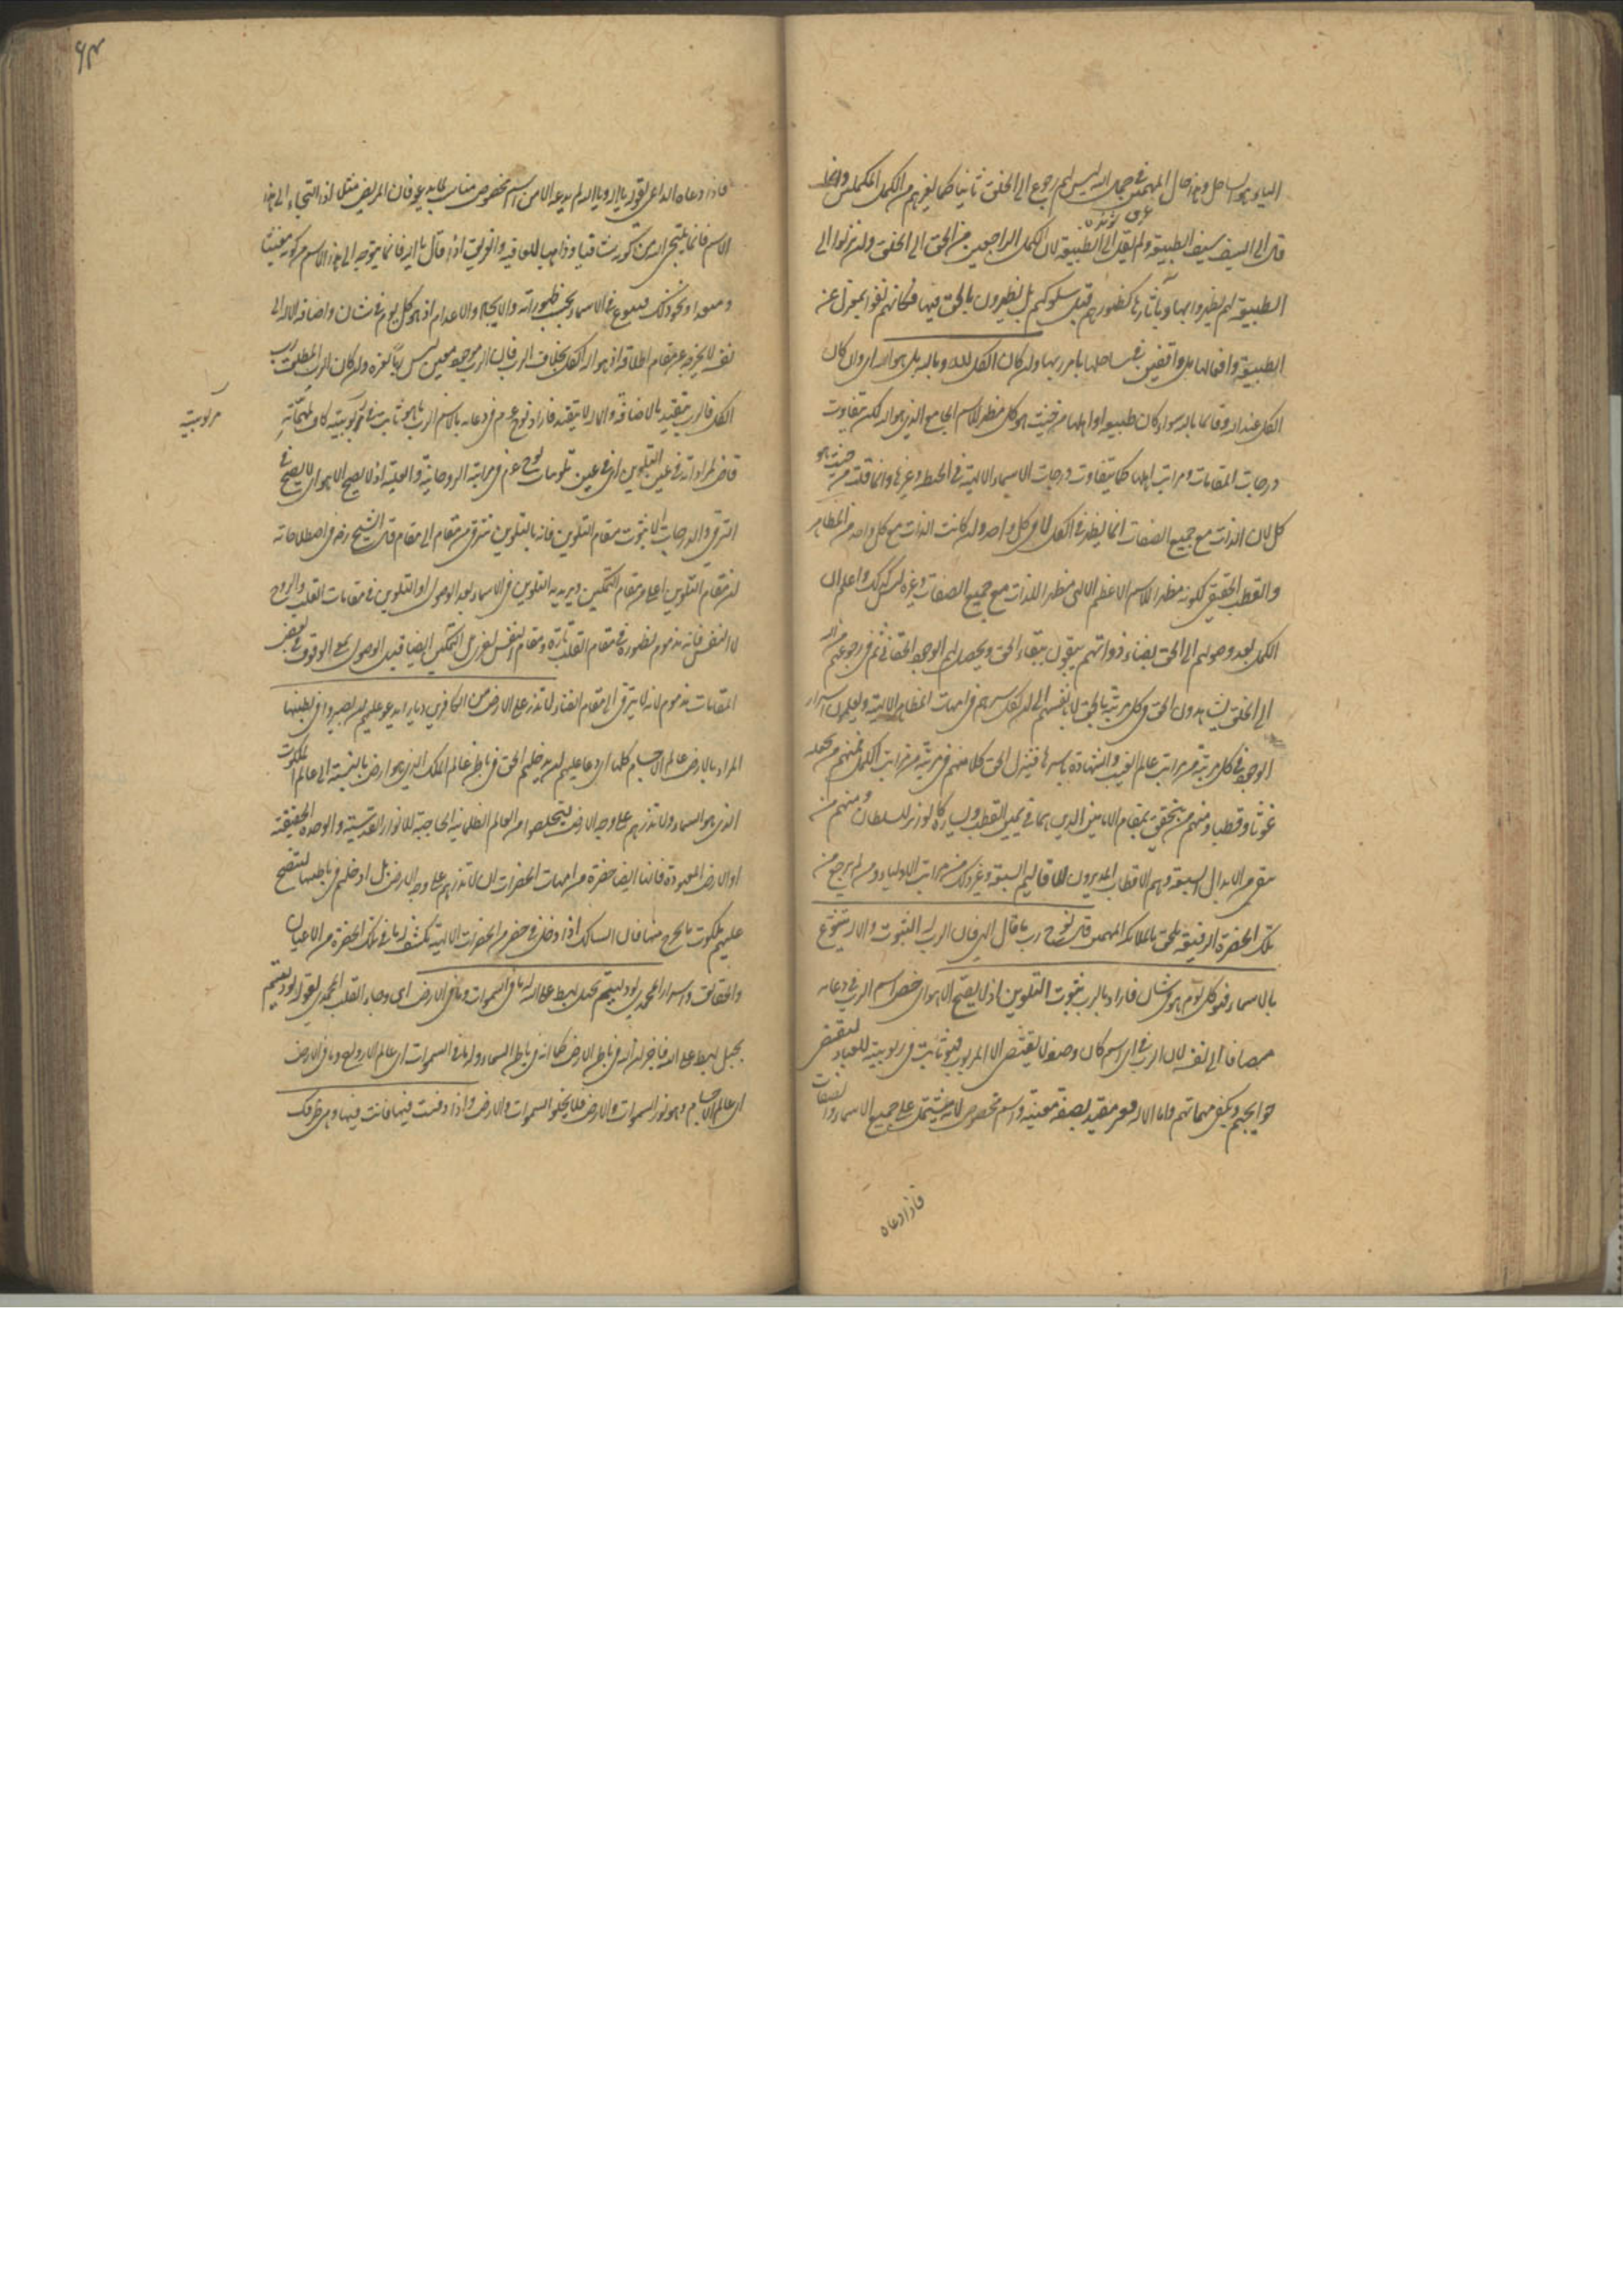 الياء هو الساحل وهذا حال المهيمين في جمال الله ليس لهم رجوع الى الخلق ثانيا كما لغيرهم من الكمل المكملين وانما
قال الى السيف سيف الطبيعة ولم يقل الى الطبيعة لان الكمل الراجعين من الحق الى الخلق وان نزلوا الى
الطبيعة لم يظهروا بها وبآثارها كظهورهم قبل سلوكهم بل يظهرون بالحق فيها فكانهم بقوا بمعزل عن
الطبيعة وافعالها بل واقفين في ساحلها بامر ربها وان كان الكل لله وبالله بل هو الله اي وان كان
الكل عند الله وقائما بالله سواء كان طبيعة او اهلها من حيث هو كل مظهر للاسم الجامع الذي هو الله لكن تتفاوت
درجات المقامات ومراتب اهلها كما يتفاوت درجات الاسماء الالهية في الحيطة وغيرها وانما قلت من حيث هو
كل لان الذات مع جميع الصفات انما يظهر في الكل لا في كل واحد وان كانت الذات مع كل واحد من المظاهر
والقطب الحقيقي لكونه مظهرا للاسم الاعظم الالهي مظهر للذات مع جميع الصفات وغيره ليس كذلك واعلم ان
الكمل بعد وصولهم الى الحق بفناء ذواتهم يبقون ببقاء الحق ويحصل لهم الوجود الحقاني ثم في رجوعهم من الله
الى الخلق يشاهدون الحق في كل مرتبة بالحق لا بانفسهم الى ان يكمل سيرهم في امهات المظاهر الالهية ويعلمون اسرار
الوجود في كل مرتبة من مراتب عالم الغيب والشهادة باسرها فينزل الحق كلا منهم في مرتبة من مراتب الكمل فمنهم من يجعله
غوثا وقطبا ومنهم من يتحقق بمقام الامامين الذين هما في يمين القطب ويساره كالوزير للسلطان ومنهم من
يبقى من الابدال السبعة وهم الاقطاب المديرون للاقاليم السبعة وغير ذلك من مراتب الاولياء ومن لم يرجع من
تلك الحضرة الرفيقة يلحق بالملائكة المهيمين قال نوح رب ما قال الهي فان الرب له الثبوت والاله يتنوع
بالاسماء فهو كل يوم هو في شأن فاراد بالرب ثبوت التلوين اذ لا يصح الا هو اي خص اسم الرب في دعائه
مضافا الى نفسه لان الرب في اي اسم كان وصفة لا يقتضي الا المربوب فهو ثابت في ربوبيته للعباد ليقضي
حوايجهم ويكفي مهماتهم واما الاله فغير مقيد بصفة معينة واسم مخصوص لانه مشتمل على جميع الاسماء والصفات
فاذا دعاه
فاذا دعاه الداعي بقوله يا اله ويا الله لم يدعه الا من اسم مخصوص مناسب لما يدعو فان المريض مثلا اذا التجأ الى هذا
الاسم فانما يلتجي اليه من كونه شافيا وواهبا للعافية والغريق اذا قال يا الله فانما يتوجه الى هذا الاسم من كونه مغيثا
ومنقذا ونحو ذلك فيتنوع في الاسماء بحسب ظهوراته والايجاد والاعدام اذ هو كل يوم في شان واضافة الاله الى
نفسه لا يخرجه عن مقام اطلاقه اذ هو اله الكل بخلاف الرب فان الرب موجود معين ليس ربا لغيره وان كان الرب المطلق رب
الكل فالرب يتقيد بالاضافة والاله لا يتقيد فاراد نوح عم في دعائه بالاسم الرب ما هو ثابت في ربوبيته كاف لمهماته
مربوبيته
قاض لمراداته في عين التلوين اي في عين تلوينات نوح عم في مراتبه الروحانية والقلبية اذ لا يصح الا هو اي لا يصح في
الترقي والدرجات الا ثبوت مقام التلوين فانه بالتلوين مترقي من مقام الى مقام قال الشيخ رض في اصطلاحاته
ان مقام التلوين اعلى من مقام التمكين ويريد به التلوين في الاسماء بعد الوصول او التلوين في مقامات القلب والروح
لا النفس فانه مذموم لظهوره في مقام القلب تارة ومقام النفس اخرى بل التمكين ايضا قبل الوصول بمعنى الوقوف في بعض
المقامات مذموم لانه لا يترقى الى مقام الفناء لا تذر على الارض من الكافرين ديارا يدعو عليهم ان يصيروا في بطنها
المراد بالارض عالم الاجسام كلها اي دعا عليهم ان يدخلهم الحق في باطن عالم الملك الذي هو ارض بالنسبة الى عالم الملكوت
الذي هو السماء ولا تذرهم على وجه الارض ليتخلصوا من العالم الظلمانية الحاجبة للانوار القدسية والوحدة الحقيقية
او الارض المعهودة فانها ايضا حضرة من امهات الحضرات اي لا تذرهم على وجه الارض بل ادخلهم في باطنها لتتضح
عليهم ملكوت ما يخرج منها فان السالك اذا دخل في حضرة من الحضرات الالهية يكشف له ما في تلك الحضرة من الاعيان
والحقائق واسرار المحمدي لو دليتم بحبل لهبط على الله له ما في السموات وما في الارض اي وجاء القلب المحمدي بقوله لو دليتم
بحبل لهبط على الله فاخبر ان الله في باطن الارض كما انه في باطن السماء وله ما في السموات اي عالم الارواح وما في الارض
اي عالم الاجسام وهو نور السموات والارض فلا يخلو السموات والارض واذا دفنت فيها فانت فيها وهي ظرفك